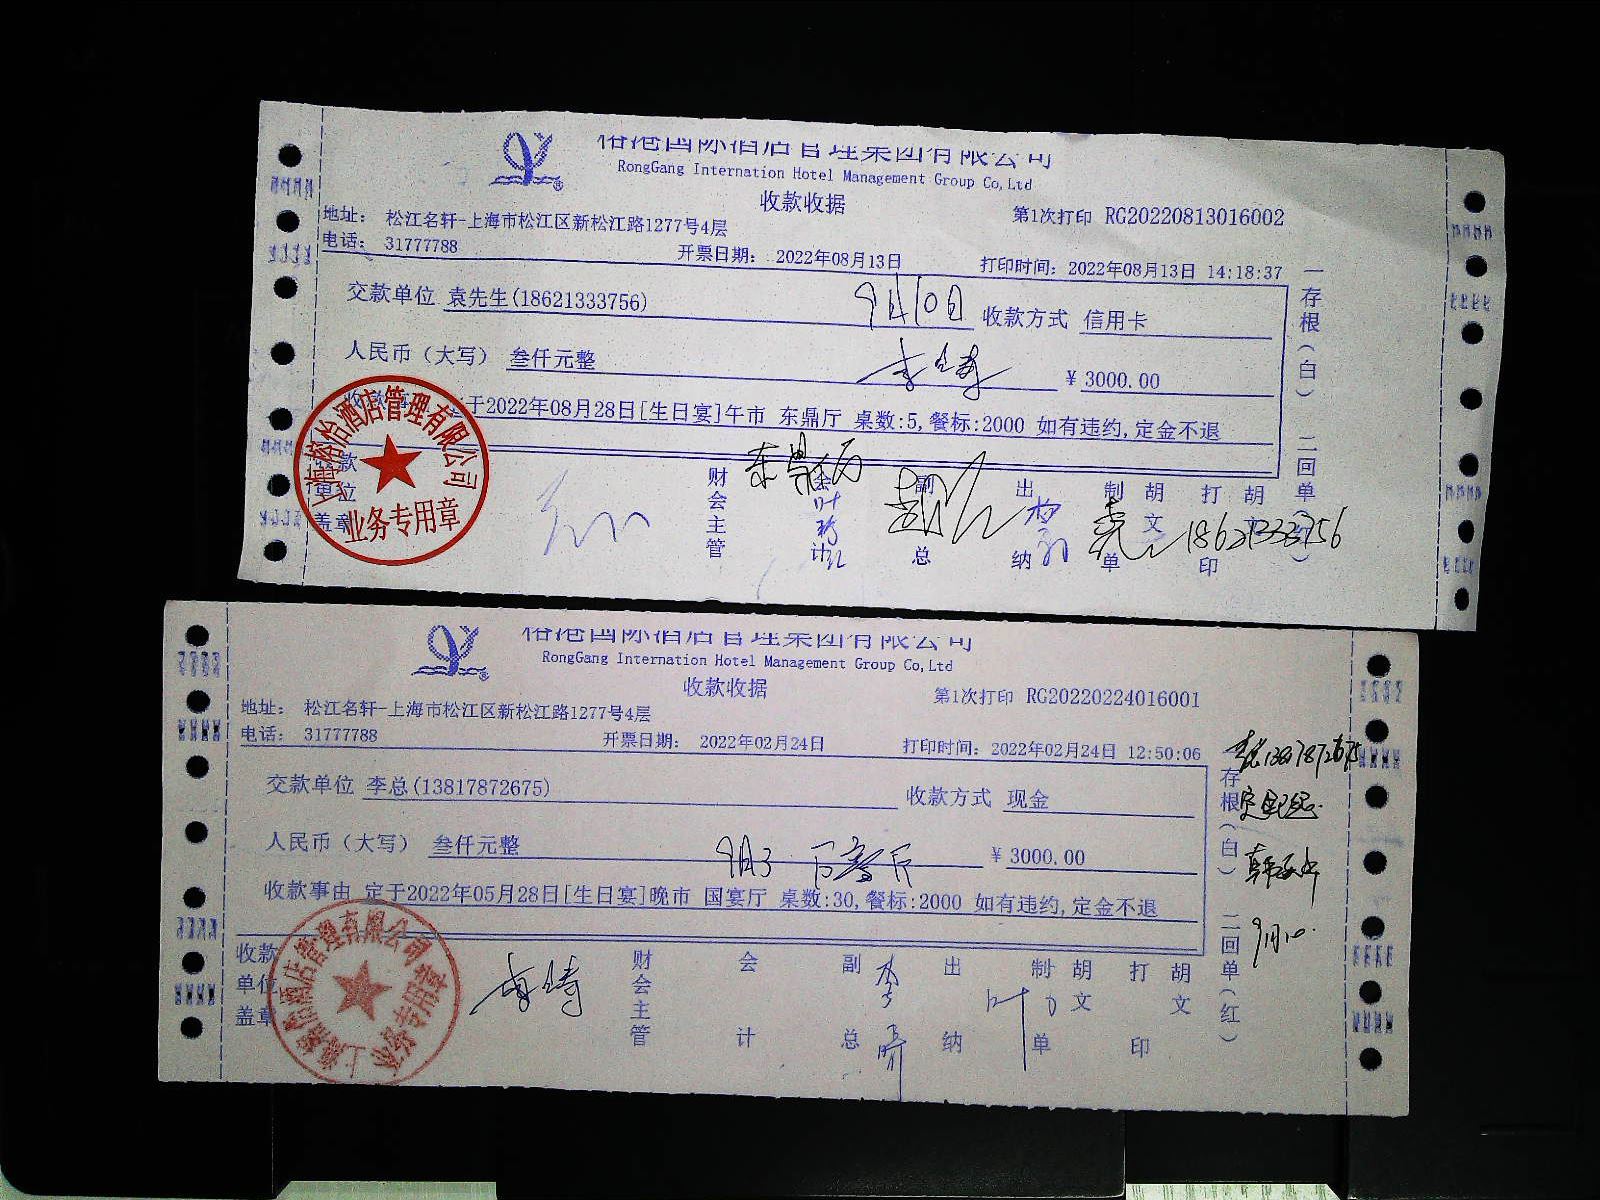 裕港国际酒店管理集团有限公司
RongGang Internation Hotel Management Group Co,Ltd
收款收据
第1次打印 RG20220813016002
地址： 松江名轩-上海市松江区新松江路1277号4层
电话： 31777788
开票日期： 2022年08月13日
打印时间：2022年08月13日 14:18:37
交款单位 袁先生(18621333756)
9月10日
收款方式 信用卡
人民币（大写） 叁仟元整
¥ 3000.00
于2022年08月28日[生日宴]午市 东鼎厅 桌数:5,餐标:2000 如有违约,定金不退
收款单位盖章
业务专用章
财会主管
会计
副总
出纳
制单 胡文
打印 胡
18621333756
一存根（白） 二回单（红）
裕港国际酒店管理集团有限公司
RongGang Internation Hotel Management Group Co,Ltd
收款收据
第1次打印 RG20220224016001
地址： 松江名轩-上海市松江区新松江路1277号4层
电话： 31777788
开票日期： 2022年02月24日
打印时间：2022年02月24日 12:50:06
交款单位 李总(13817872675)
收款方式 现金
人民币（大写） 叁仟元整
9月3
¥ 3000.00
收款事由 定于2022年05月28日[生日宴]晚市 国宴厅 桌数:30,餐标:2000 如有违约,定金不退
收款单位盖章
财会主管
会计
副总
出纳
制单 胡文
打印 胡文
存根（白） 二回单（红）
9月10